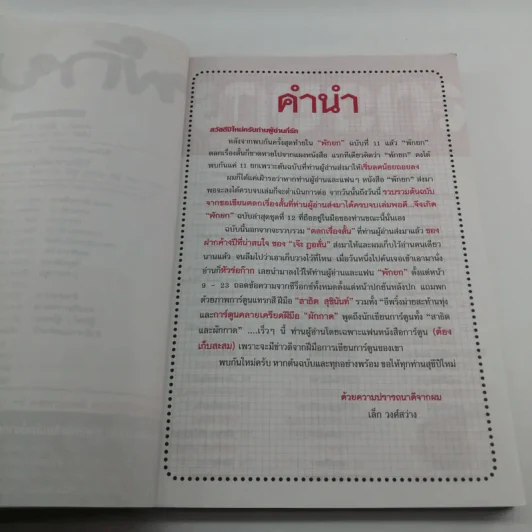 คำนำ
สวัสดีปีใหม่ครับท่านผู้อ่านที่รัก
หลังจากพบกันครั้งสุดท้ายใน "พักยก" ฉบับที่ 11 แล้ว "พักยก"
ตลกเรื่องสั้นก็ขาดหายไปจากแผงหนังสือ แรกทีเดียวคิดว่า "พักยก" คงได้
พบกันแค่ 11 ยกเพราะต้นฉบับที่ท่านผู้อ่านส่งมาให้เริ่มลดน้อยถอยลง
ผมก็ได้แต่เฝ้ารอว่าหากท่านผู้อ่านและแฟนๆ หนังสือ "พักยก" ส่งมา
พอจะลงได้ครบจบเล่มก็จะดำเนินการต่อ จากวันนั้นถึงวันนี้ รวบรวมต้นฉบับ
จากขอเขียนตลกเรื่องสั้นที่ท่านผู้อ่านส่งมาได้ครบจบเล่มพอดี...จึงเกิด
"พักยก" ฉบับล่าสุดชุดที่ 12 ที่ถืออยู่ในมือของท่านขณะนี้นั่นเอง
ฉบับนี้นอกจากจะรวบรวม "ตลกเรื่องสั้น" ที่ท่านผู้อ่านส่งมาแล้ว ของ
ฝากค้างปีที่น่าสนใจ ของ "เจ๊ง ฏอสั้น" ส่งมาให้และผมเก็บไว้อ่านคนเดียว
นานแล้ว จนลืมไปว่าเอาเก็บวางไว้ที่ไหน เมื่อวันหนึ่งไปค้นเจอเข้าเอามานั่ง
อ่านก็หัวร่อก๊าก เลยนำมาลงไว้ให้ท่านผู้อ่านและแฟน "พักยก" ตั้งแต่หน้า
9 - 23 ถอดข้อความจากซีร็อกซ์ทั้งหมดตั้งแต่หน้าปกยันหลังปก แถมพก
ด้วยภาพการ์ตูนแทรกสีฝีมือ "สาธิต สุชินันท์" รวมทั้ง
และการ์ตูนคลายเครียดฝีมือ "ผักกาด" พูดถึงนักเขียนการ์ตูนทั้ง "สาธิต
และผักกาด" ....เร็วๆ นี้ ท่านผู้อ่านโดยเฉพาะแฟนหนังสือการ์ตูน (ต้อง
เก็บสะสม) เพราะจะมีข่าวดีจากฝีมือการเขียนการ์ตูนของเขา
พบกันใหม่ครับ หากต้นฉบับและทุกอย่างพร้อม ขอให้ทุกท่านสุขีปีใหม่
ด้วยความปรารถนาดีจากผม
เล็ก วงศ์สว่าง